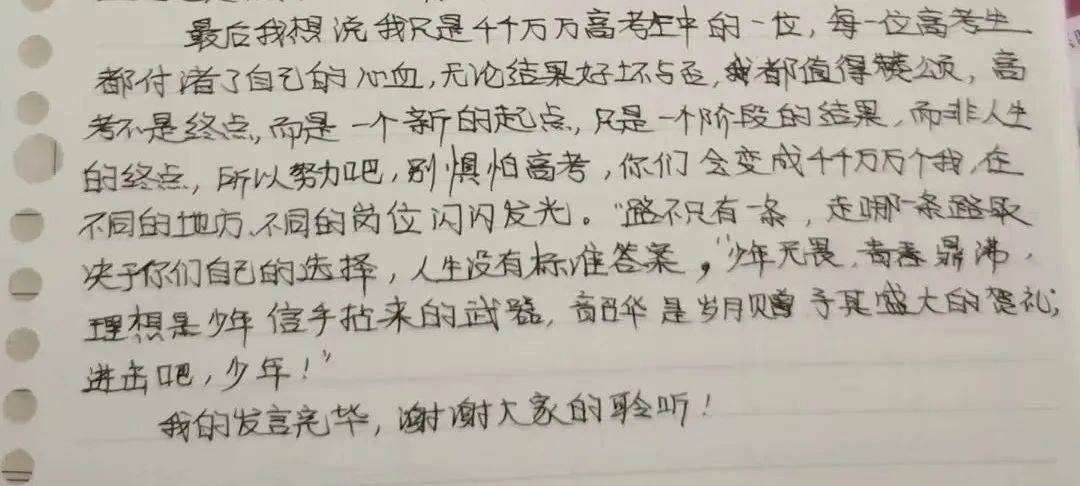 最后我想说我只是千千万万高考生中的一位，每一位高考生
都付诸了自己的心血，无论结果好坏与否，都值得赞颂，高
考不是终点，而是一个新的起点，只是一个阶段的结果，而非人生
的终点，所以努力吧，别惧怕高考，你们会变成千千万万个我，在
不同的地方、不同的岗位闪闪发光。"路不只有一条，走哪一条路取
决于你们自己的选择，人生没有标准答案，"少年无畏，青春鼎沸，
理想是少年信手拈来的武器，韶华是岁月赠予其盛大的贺礼；
进击吧，少年！"
我的发言完毕，谢谢大家的聆听！